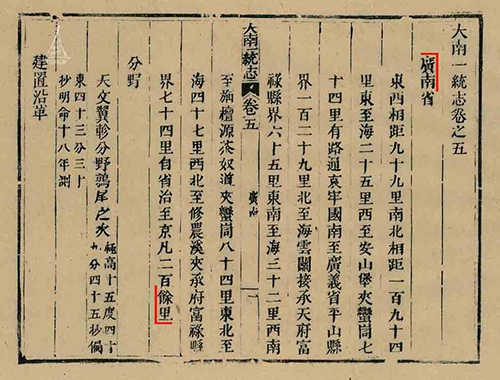 大南一統志卷之五
廣南省
東西相距九十九里南北相距一百九十四
里東至海二十五里西至安山堡夾蠻峝七
十四里有路通哀牢國南至廣義省平山縣
界一百二十九里北至海雲關接承天府富
祿縣界六十五里東南至海三十二里西南
大南一統志 卷五 廣南 一
至旃檀源茶奴道夾蠻峝八十四里東北至
海四十七里西北至修農溪夾承府富祿縣
界七十四里自省治至京凡二百餘里
分野
天文翼軫分野鶉尾之次
極高十五度四十
九分四十五秒偏
東四十三分三十
秒明命十八年測
建置沿革